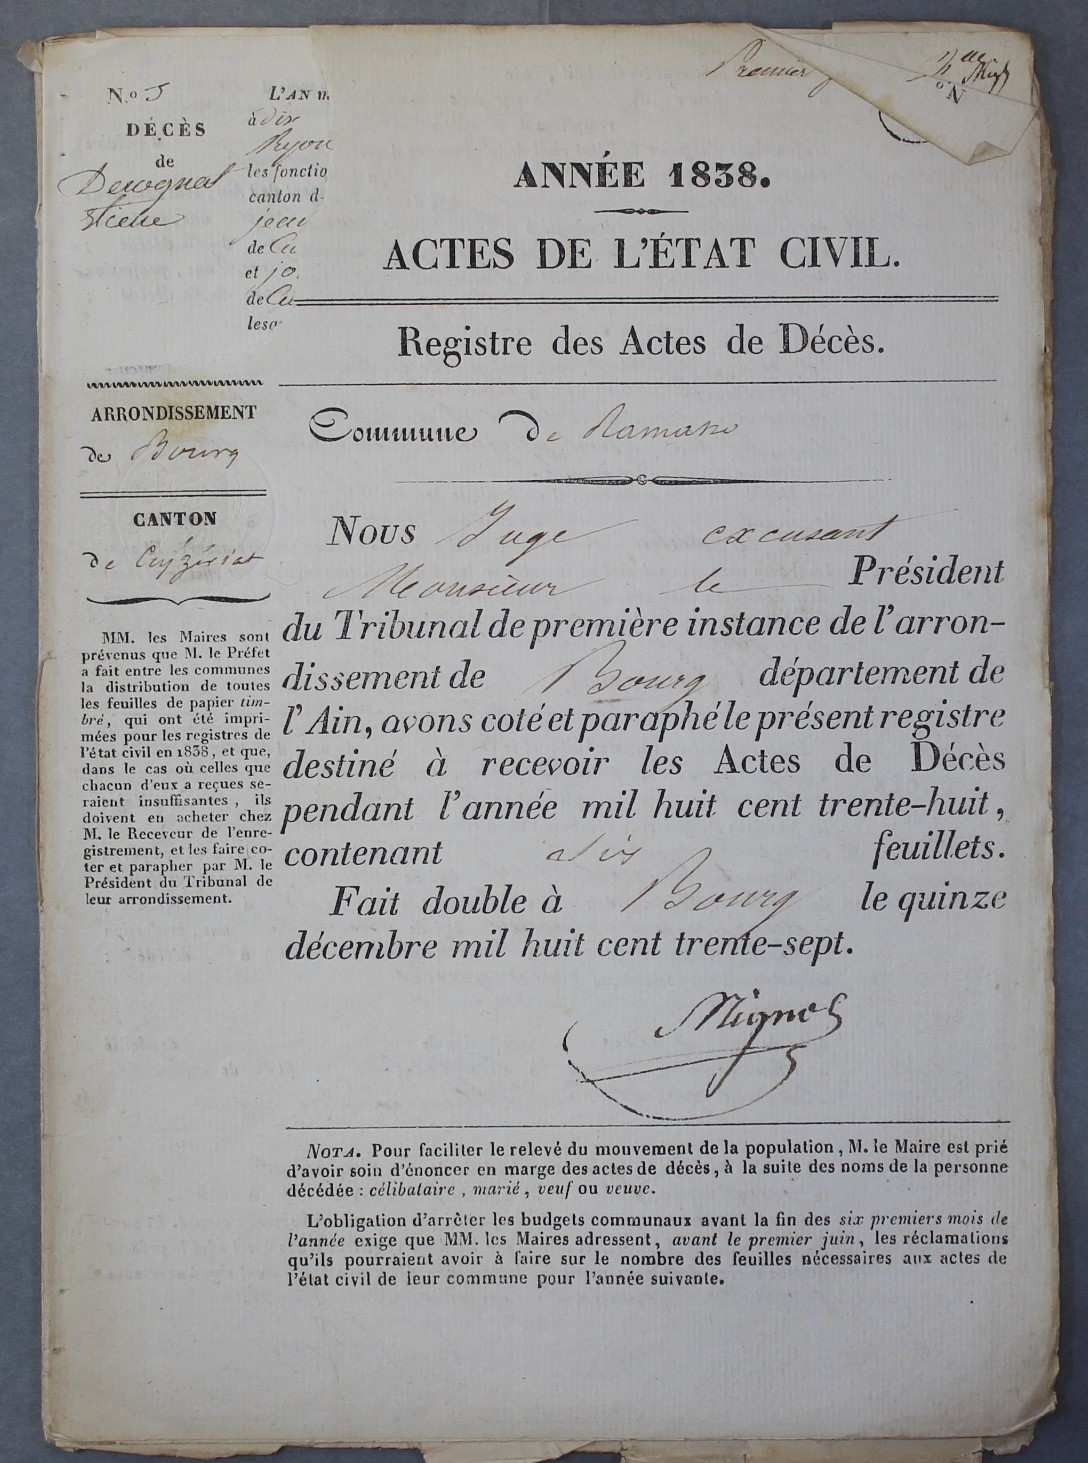 Premier
N.o 5
DÉCÈS
de
L'AN M
à dix
les fonctio
canton d
jean
de Cu
et jo
de Cu
ANNÉE 1838.
ACTES DE L'ÉTAT CIVIL.
Registre des Actes de Décès.
ARRONDISSEMENT
de Bourg
CANTON
de Ceyzériat
MM. les Maires sont
prévenus que M. le Préfet
a fait entre les communes
la distribution de toutes
les feuilles de papier tim-
bré, qui ont été impri-
mées pour les registres de
l'état civil en 1838, et que,
dans le cas où celles que
chacun d'eux a reçues se-
raient insuffisantes, ils
doivent en acheter chez
M. le Receveur de l'enre-
gistrement, et les faire co-
ter et parapher par M. le
Président du Tribunal de
leur arrondissement.
Commune De Ramasse
NOUS Juge excusant
Monsieur le Président
du Tribunal de première instance de l'arron-
dissement de Bourg département de
l'Ain, avons coté et paraphé le présent registre
destiné à recevoir les Actes de Décès
pendant l'année mil huit cent trente-huit,
contenant six feuillets.
Fait double à Bourg le quinze
décembre mil huit cent trente-sept.
NOTA. Pour faciliter le relevé du mouvement de la population, M. le Maire est prié
d'avoir soin d'énoncer en marge des actes de décès, à la suite des noms de la personne
décédée : célibataire, marié, veuf ou veuve.
L'obligation d'arrêter les budgets communaux avant la fin des six premiers mois de
l'année exige que MM. les Maires adressent, avant le premier juin, les réclamations
qu'ils pourraient avoir à faire sur le nombre des feuilles nécessaires aux actes de
l'état civil de leur commune pour l'année suivante.